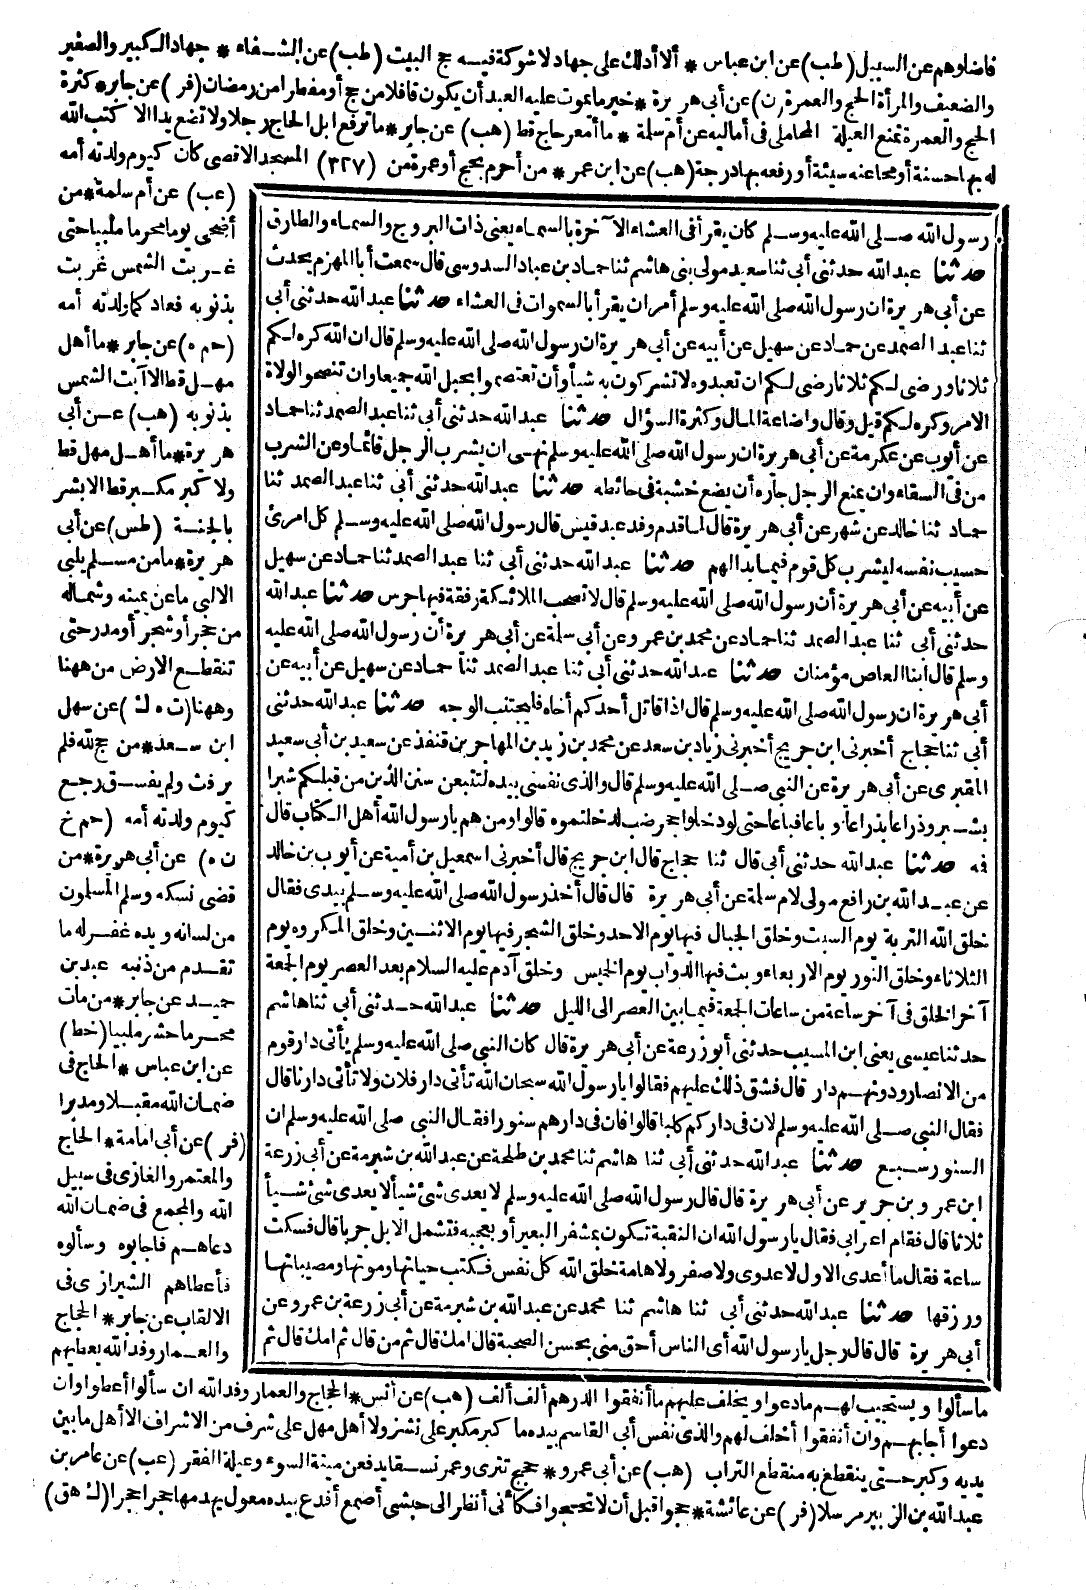 فاضلوهم عن السبيل (طب) عن ابن عباس * ألا أدلك على جهاد لا شوكة فيه حج البيت (طب) عن الشفاء * جهاد الكبير والصغير
والضعيف والمرأة الحج والعمرة (ن) عن أبي هريرة * خير ما يموت عليه العبد أن يكون قافلا من حج أو مفطرا من رمضان (فر) عن جابر * كثرة
الحج والعمرة تمنع العيلة المحاملي في أماليه عن أم سلمة * ما أمعر حاج قط (هب) عن جابر * ما ترفع ابل الحاج رجلا ولا تضع يدا الا كتب الله
له بها حسنة أو محا عنه سيئة أو رفعه بها درجة (هب) عن ابن عمر * من أحرم بحج أو عمرة من (٣٢٧) المسجد الاقصى كان كيوم ولدته أمه
(عب) عن أم سلمة * من
أضحى يوما محرما ملبيا حتى
غربت الشمس غربت
بذنوبه فعاد كما ولدته أمه
(حم ه) عن جابر * ما أهل
مهل قط الا آبت الشمس
بذنوبه (هب) عن أبي
هريرة * ما أهل مهل قط
ولا كبر مكبر قط الا بشر
بالجنة (طس) عن أبي
هريرة * ما من مسلم يلبي
الا لبى ما عن يمينه وشماله
من حجر أو شجر أو مدر حتى
تنقطع الارض من ههنا
وههنا (ت ه ك) عن سهل
ابن سعد * من حج لله فلم
يرفث ولم يفسق رجع
كيوم ولدته أمه (حم خ
ن ه) عن أبي هريرة * من
قضى نسكه وسلم المسلمون
من لسانه ويده غفر له ما
تقدم من ذنبه عبد بن
حميد عن جابر * من مات
محرما حشر ملبيا (خط)
عن ابن عباس * الحاج في
ضمان الله مقبلا ومدبرا
(فر) عن أبي امامة * الحاج
والمعتمر والغازي في سبيل
الله والمجمع في ضمان الله
دعاهم فأجابوه وسألوه
فأعطاهم الشيرازي في
الالقاب عن جابر * الحاج
والعمار وفد الله يعطيهم
رسول الله صلى الله عليه وسلم كان يقرأ في العشاء الآخرة بالسماء يعني ذات البروج والسماء والطارق
حدثنا عبد الله حدثني أبي ثنا سعيد مولى بني هاشم ثنا حماد بن عباد السدوسي قال سمعت أبا المهزم يحدث
عن أبي هريرة ان رسول الله صلى الله عليه وسلم أمر ان يقرأ بالسموات في العشاء حدثنا عبد الله حدثني أبي
ثنا عبد الصمد عن حماد عن سهيل عن أبيه عن أبي هريرة ان رسول الله صلى الله عليه وسلم قال ان الله كره لكم
ثلاثا ورضى لكم ثلاثا رضى لكم ان تعبدوه ولا تشركون به شيأ وأن تعتصموا بحبل الله جميعا وان تنصحوا لولاة
الامر وكره لكم قيل وقال واضاعة المال وكثرة السؤال حدثنا عبد الله حدثني أبي ثنا عبد الصمد ثنا حماد
عن أيوب عن عكرمة عن أبي هريرة ان رسول الله صلى الله عليه وسلم نهى ان يشرب الرجل قائما وعن الشرب
من في السقاء وان يمنع الرجل جاره أن يضع خشبة في حائطه حدثنا عبد الله حدثني أبي ثنا عبد الصمد ثنا
حماد ثنا خالد عن شهر عن أبي هريرة قال لما قدم وفد عبد قيس قال رسول الله صلى الله عليه وسلم كل امرئ
حسيب نفسه ليشرب كل قوم فيما بدا لهم حدثنا عبد الله حدثني أبي ثنا عبد الصمد ثنا حماد عن سهيل
عن أبيه عن أبي هريرة أن رسول الله صلى الله عليه وسلم قال لا تصحب الملائكة رفقة فيها جرس حدثنا عبد الله
حدثني أبي ثنا عبد الصمد ثنا حماد عن محمد بن عمرو عن أبي سلمة عن أبي هريرة أن رسول الله صلى الله عليه
وسلم قال ابنا العاص مؤمنان حدثنا عبد الله حدثني أبي ثنا عبد الصمد ثنا حماد عن سهيل عن أبيه عن
أبي هريرة ان رسول الله صلى الله عليه وسلم قال اذا قاتل أحدكم أخاه فليجتنب الوجه حدثنا عبد الله حدثني
أبي ثنا حجاج أخبرني ابن جريج أخبرني زياد بن سعد عن محمد بن زيد بن المهاجر بن قنفذ عن سعيد بن أبي سعيد
المقبري عن أبي هريرة عن النبي صلى الله عليه وسلم قال والذي نفسي بيده لتتبعن سنن الذين من قبلكم شبرا
بشبر وذراعا بذراع أو باعا فباعا حتى لو دخلوا جحر ضب لدخلتموه قالوا ومن هم يا رسول الله أهل الكتاب قال
فه حدثنا عبد الله حدثني أبي قال ثنا حجاج قال ابن جريج قال أخبرني اسمعيل بن أمية عن أيوب بن خالد
عن عبد الله بن رافع مولى لام سلمة عن أبي هريرة قال قال أخذ رسول الله صلى الله عليه وسلم بيدي فقال
خلق الله التربة يوم السبت وخلق الجبال فيها يوم الاحد وخلق الشجر فيها يوم الاثنين وخلق المكروه يوم
الثلاثاء وخلق النور يوم الاربعاء وبث فيها الدواب يوم الخميس وخلق آدم عليه السلام بعد العصر يوم الجمعة
آخر الخلق في آخر ساعة من ساعات الجمعة فيما بين العصر الى الليل حدثنا عبد الله حدثني أبي ثنا هاشم
حدثنا عيسى يعني ابن المسيب حدثني أبو زرعة عن أبي هريرة قال كان النبي صلى الله عليه وسلم يأتي دار قوم
من الانصار ودونهم دار قال فشق ذلك عليهم فقالوا يا رسول الله سبحان الله تأتي دار فلان ولا تأتي دارنا قال
فقال النبي صلى الله عليه وسلم لان في داركم كلبا قالوا فان في دارهم سنورا فقال النبي صلى الله عليه وسلم ان
السنور سبع حدثنا عبد الله حدثني أبي ثنا هاشم ثنا محمد بن طلحة عن عبد الله بن شبرمة عن أبي زرعة
ابن عمرو بن جرير عن أبي هريرة قال قال رسول الله صلى الله عليه وسلم لا يعدى شئ شيأ لا يعدى شئ شيأ
ثلاثا قال فقام اعرابي فقال يا رسول الله ان النقبة تكون بمشفر البعير أو بعجبه فتشمل الابل جربا قال فسكت
ساعة فقال ما أعدى الاول لا عدوى ولا صفر ولا هامة خلق الله كل نفس فكتب حياتها وموتها ومصيباتها
ورزقها حدثنا عبد الله حدثني أبي ثنا هاشم ثنا محمد عن عبد الله بن شبرمة عن أبي زرعة بن عمرو عن
أبي هريرة قال قال رجل يا رسول الله أي الناس أحق مني بحسن الصحبة قال امك قال ثم من قال ثم امك قال ثم
ما سألوا ويستجيب لهم ما دعوا ويخلف عليهم ما أنفقوا الدرهم ألف ألف (هب) عن أنس * الحجاج والعمار وفد الله ان سألوا أعطوا وان
دعوا أجابهم وان أنفقوا أخلف لهم والذي نفس أبي القاسم بيده ما كبر مكبر على نشز ولا أهل مهل على شرف من الاشراف الا أهل ما بين
يديه وكبر حتى ينقطع به منقطع التراب (هب) عن أبي عمرو * حجج تترى وعمر نسقا يدفعن ميتة السوء وعيلة الفقر (عب) عن عامر بن
عبد الله بن الزبير مرسلا (فر) عن عائشة * حجوا قبل أن لا تحجوا فكأني أنظر الى حبشي أصمع أفدع بيده معول يهدمها حجرا حجرا (ك هق)